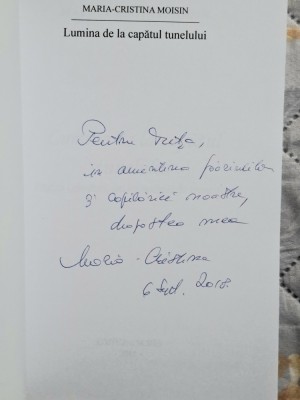 MARIA-CRISTINA MOISIN
Lumina de la capătul tunelului
Pentru
în amintirea părinților
și copilăriei noastre,
dragostea mea
Maria-Cristina
6 2018